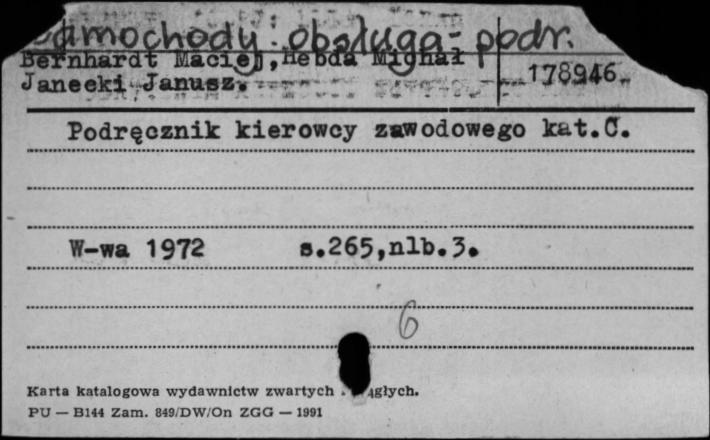 Samochody : obsługa - podr.
Bernhardt Maciej, Hebda Michał
Janecki Janusz.
178946
Podręcznik kierowcy zawodowego kat.C.
W-wa 1972 s.265,nlb.3.
6
Karta katalogowa wydawnictw zwartych ągłych.
PU — B144 Zam. 849/DW/On ZGG — 1991